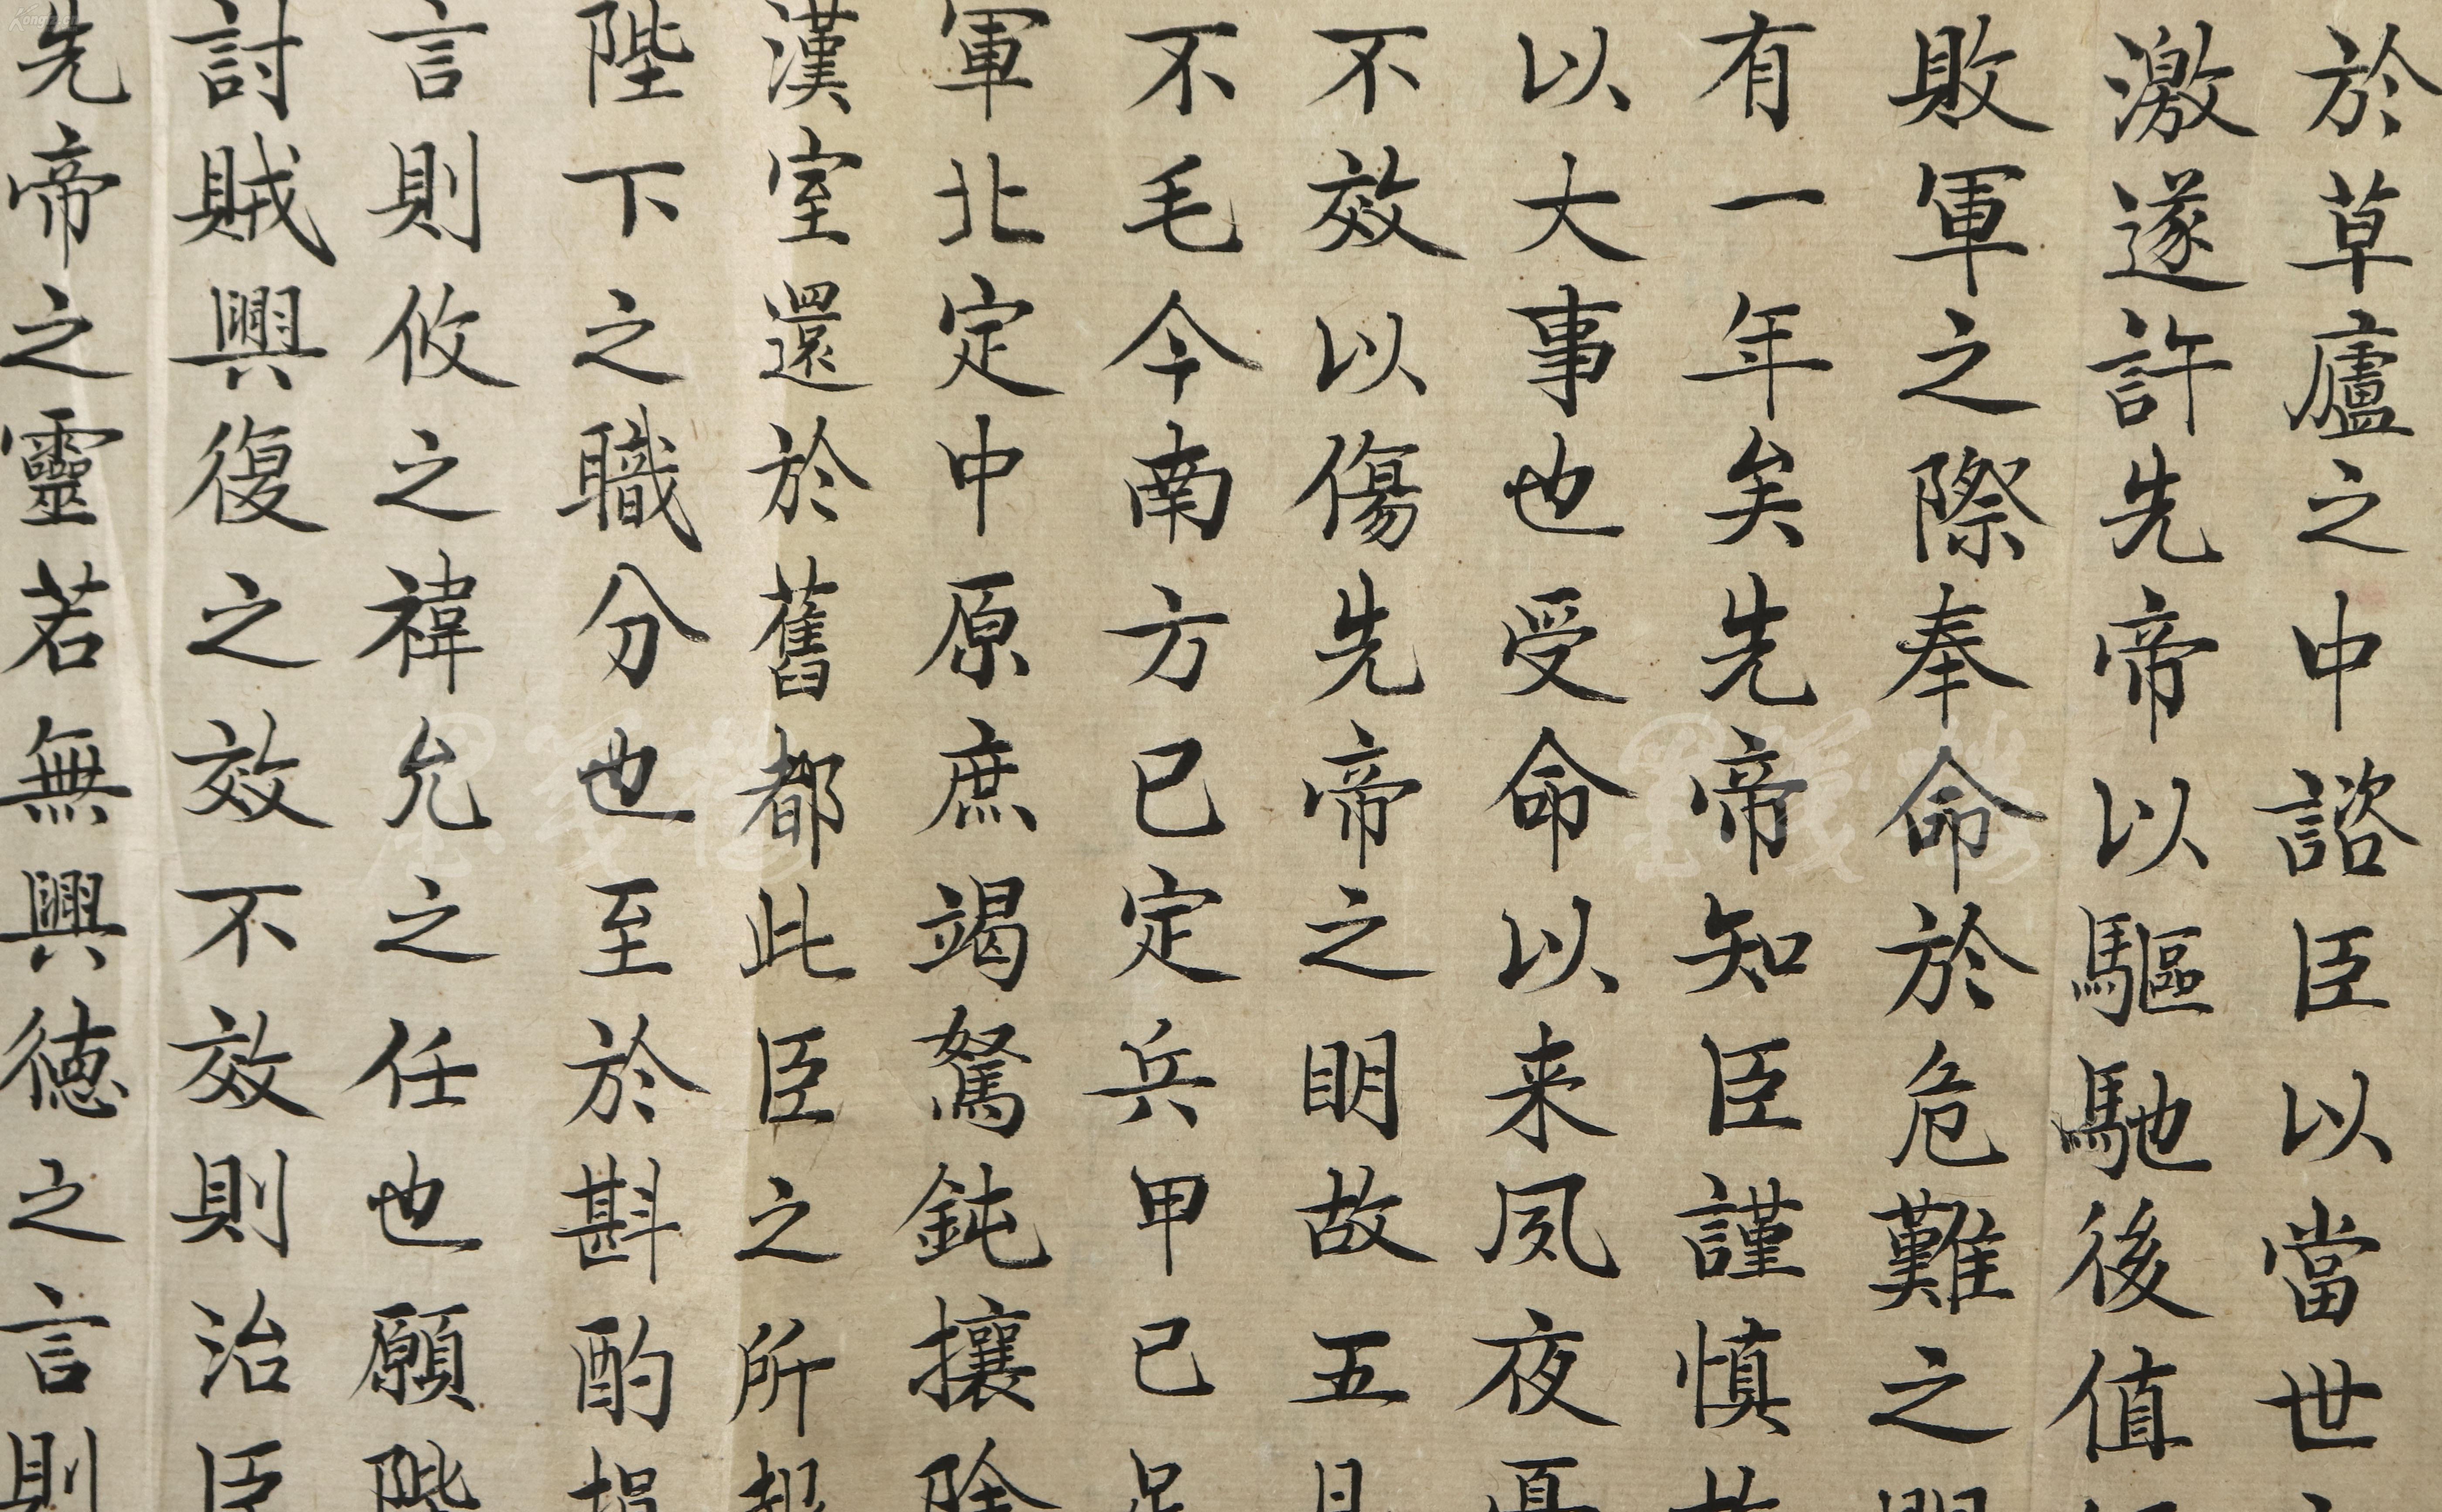 於草廬之中諮臣以當世
激遂許先帝以驅馳後值
敗軍之際奉命於危難之
有一年矣先帝知臣謹慎故
以大事也受命以来夙夜憂
不效以傷先帝之明故五月
不毛今南方已定兵甲已足
軍北定中原庶竭駑鈍攘除
漢室還於舊都此臣之所報
陛下之職分也至於斟酌損
言則攸之禕允之任也願陛
討賊興復之效不效則治臣
先帝之靈若無興德之言則